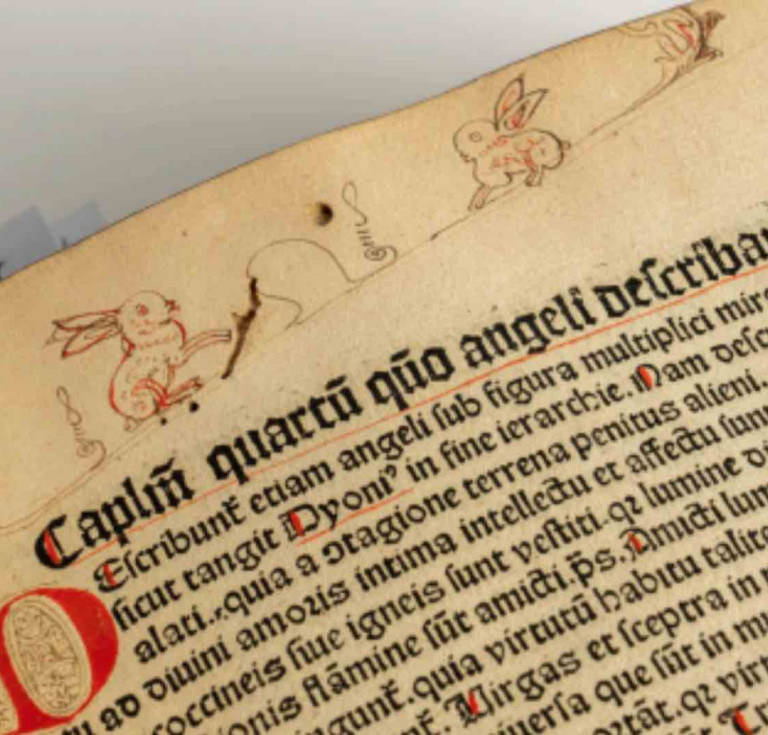 Caplm̃ quartū qūo angeli deſcriba
Eſcribunt̃ etiam angeli ſub figura multiplici mir
ſicut tangit Dyoniꝰ in fine ierarchie. Nam deſc
alati. quia a ↄtagione terrena penitus alieni.
ad diuini amoꝛis intima intellectu et affectu ſun
coccineis ſiue igneis ſunt veſtiti. qꝛ lumine
flāmine ſūt amicti. p̄s. Amicti lum
quia virtutū habitu talite
Virgas et ſceptra in
que ſūt in mu
qꝛ virt